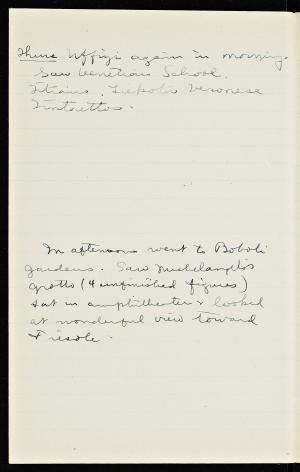 Thurs Uffizi again in morning.
Saw Venetian School.
Titians, Tiepolos Veronese
Tintorettos.
In afternoon went to Boboli
gardens. Saw Michelangelo's
grotto (4 unfinished figures)
sat in amphitheater & looked
at wonderful view toward
Fiesole.